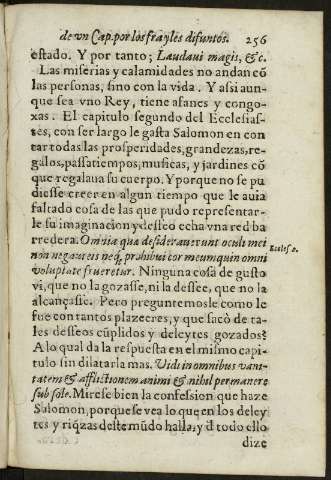 de vn Cap. por los frayles difuntos. 256
estado. Y por tanto; Laudaui magis, &c.
Las miserias y calamidades no andan cō
las personas, sino con la vida. Y assi aun-
que sea vno Rey, tiene afanes y congo-
xas. El capitulo segundo del Ecclesias-
tes, con ser largo le gasta Salomon en con
tar todas las prosperidades, grandezas, re-
galos, passatiempos, musicas, y jardines cō
que regalaua su cuerpo. Y porque no se pu
diesse creer en algun tiempo que le auia
faltado cosa de las que pudo representar-
le su imaginacion y desseo echa vna red ba
rredera. Omnia quæ desiderauerunt oculi mei
non negaui eis neq; prohibui cor meum quin omni
Eccles. 2.
voluptate frueretur. Ninguna cosa de gusto
vi, que no la gozasse, ni la dessee, que no la
alcançasse. Pero preguntemosle como le
fue con tantos plazeres, y que sacò de ta-
les desseos cūplidos y deleytes gozados?
A lo qual da la respuesta en el mismo capi-
tulo sin dilatarla mas. Vidi in omnibus vani-
tatem & afflictionem animi & nihil permanere
sub sole. Mirese bien la confession que haze
Salomon, porque se vea lo que en los deley
tes y riq̄zas deste mūdo halla, y d̄ todo ello
dize